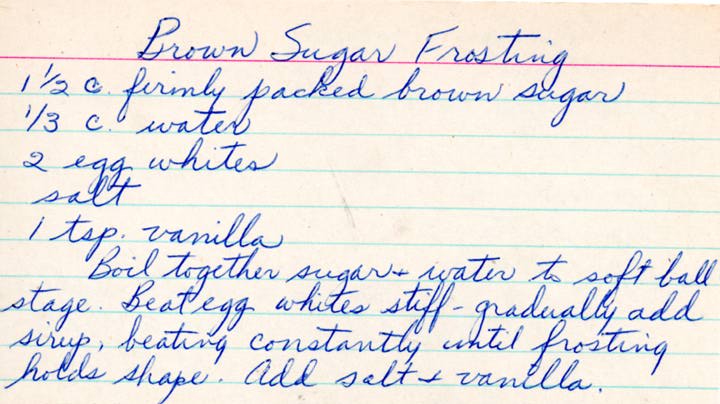 Brown Sugar Frosting
1 1/2 c. firmly packed brown sugar
1/3 c. water
2 egg whites
salt
1 tsp. vanilla
Boil together sugar + water to soft ball
stage. Beat egg whites stiff - gradually add
sirup, beating constantly until frosting
holds shape. Add salt + vanilla.